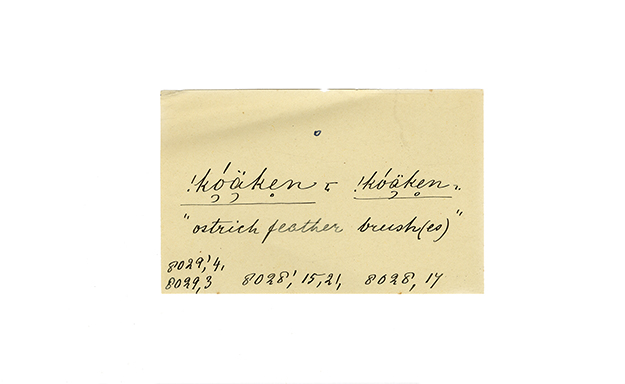 !kó̜ä̜ken̥ ꞇ !kó̜ä̜ken̥.
"ostrich feather brush(es)"
8029',4,
8029,3 8028', 15, 21, 8028, 17